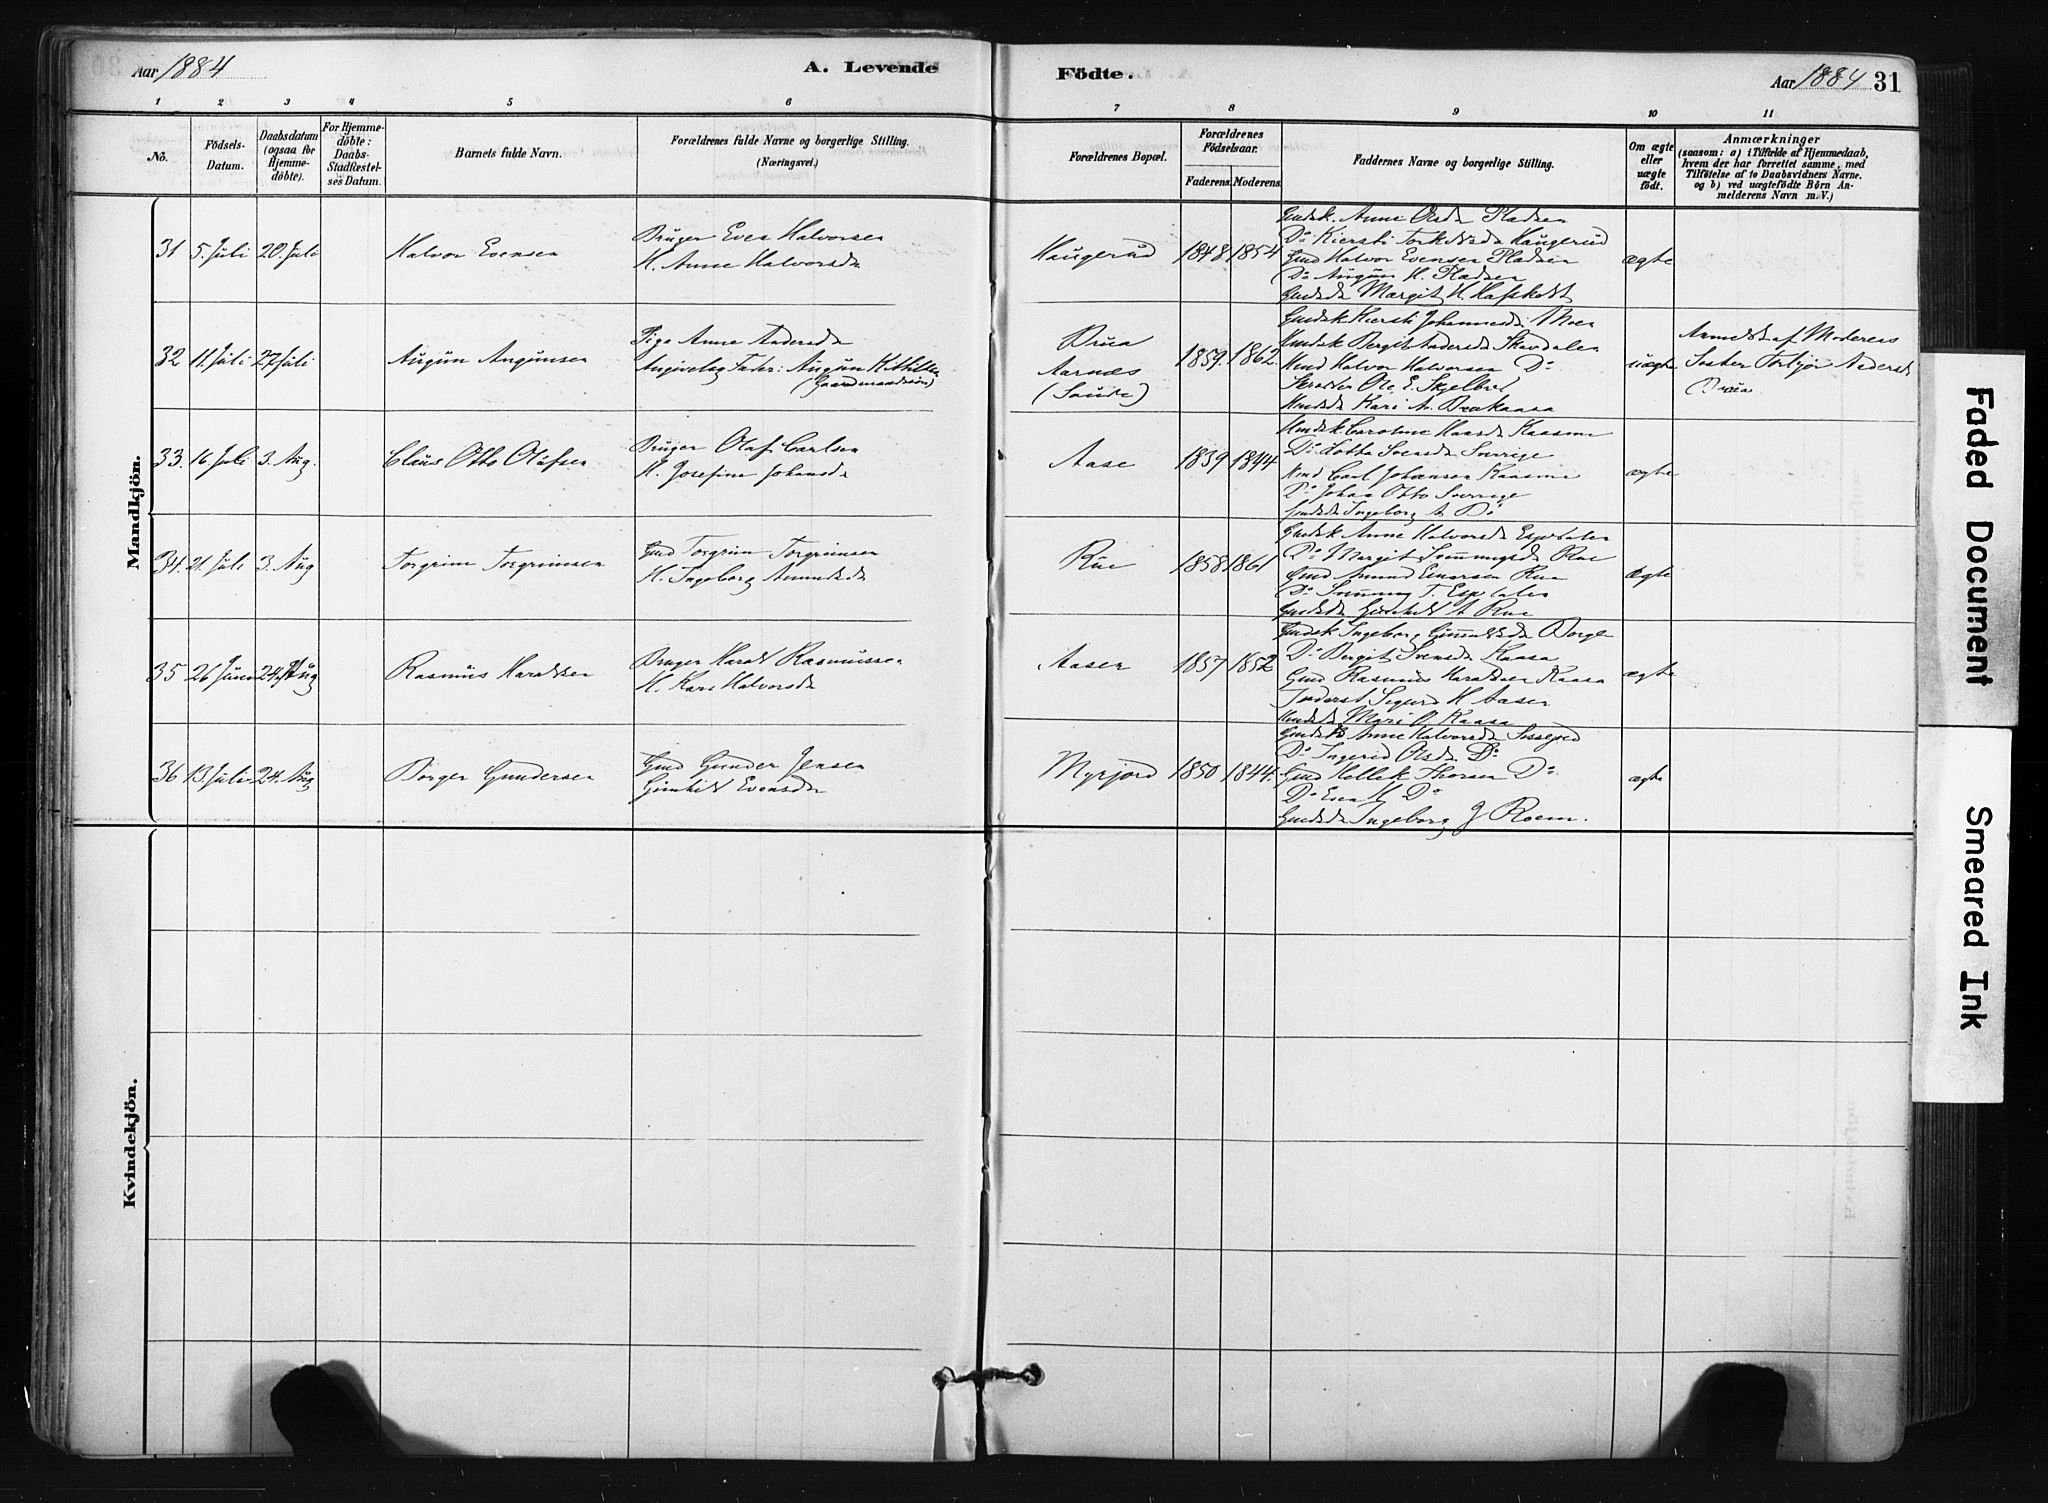 Aar 1884
A. Levende
Födte.
Aar 1884
31
1 2 3 4 5 6 7 8 9 10 11
No.
Födsels-
Datum.
Daabsdatum
(ogsaa for
Hjemme-
döbte).
For Hjemme-
döbte:
Daabs-
Stadfæstel-
ses Datum.
Barnets fulde Navn.
Forældrenes fulde Navne og borgerlige Stilling.
(Næringsvei.)
Forældrenes Bopæl.
Forældrenes
Födselsaar.
Faderens.
Moderens.
Faddernes Navne og borgerlige Stilling.
Om ægte
eller
uægte
födt.
Anmærkninger
(saasom: a) i Tilfælde af Hjemmedaab,
hvem der har forrettet samme, med
Tilföielse af to Daabsvidners Navne.
og b) ved uægtefödte Börn An-
melderens Navn m. V.)
Mandkjön.
31 5. Juli 20. Juli
Halvor Evensen
Bruger Even Halvorsen
H. Anne Halvorsda
Haugerud
1848 1854
Gmdsk. Anne Olsda Pladsen
Do Kiersti Torkildsda Haugerud
Gmd Halvor Evensen Pladsen
Do Augun H. Pladsen
Gmdsda Margit H.
ægte
32 11. Juli 27 Juli
Augun Augunsen
Pige Anne Andersda
Angivelig Fader: Augun K.
(Gaardmandssøn)
Brua
Aarnæs
(Saude)
1859. 1862.
Kiersti Johannesda Moen
Bergit Andersda Skavdalen
Halvor Halvorsen Do
Ole E. Skjelbred
Kari A.
uægte
Anmeldt af Moderens
Søster Torbjør Andersd
Brua
33. 16. Juli 3. Aug.
Claus Otto Olafsen
Bruger Olaf Carlsen
H. Josefine Johansda
Aase
1839 1844
Caroline
Do Lotta Svensda Sverige
Carl Johansen
Do Johan Otto Sverige
Ingeborg A. Do
ægte
34. 21. Juli 3. Aug
Torgrim Torgrimsen
Gmd Torgrim Torgrimsen
H. Ingeborg Amundsda
Rue
1858 1861
Gmdsk Anne Halvorsda Espedalen
Do Margit Rue
Gmd Amund Einarsen Rue
Do T. Espedalen
Gmdsda Gunhild A. Rue
ægte
35 26 Juni 24. Aug
Rasmus Haraldsen
Bruger Harald Rasmussen
H. Kari Halvorsda
Aasen
1857 1852
Gmdsk Ingeborg Borge
Do Bergit Svensda Kaasa
Gmd Rasmus Haraldsen Kaasa
Sigurd H Aasen
Mari O. Kaasa
ægte
36 13. Juli 24. Aug
Borger Gundersen
Gmd Gunder Jensen
Gunhild Evensda
Myrjord
1850 1844.
Gmdsk Anne Halvorsda
Do Ingerid Olsda Do
Gmd Kellek Thorsen Do
Do Even H Do
Gmdsda Ingeborg J
ægte
Kvindekjön.
Faded Document
Smeared Ink